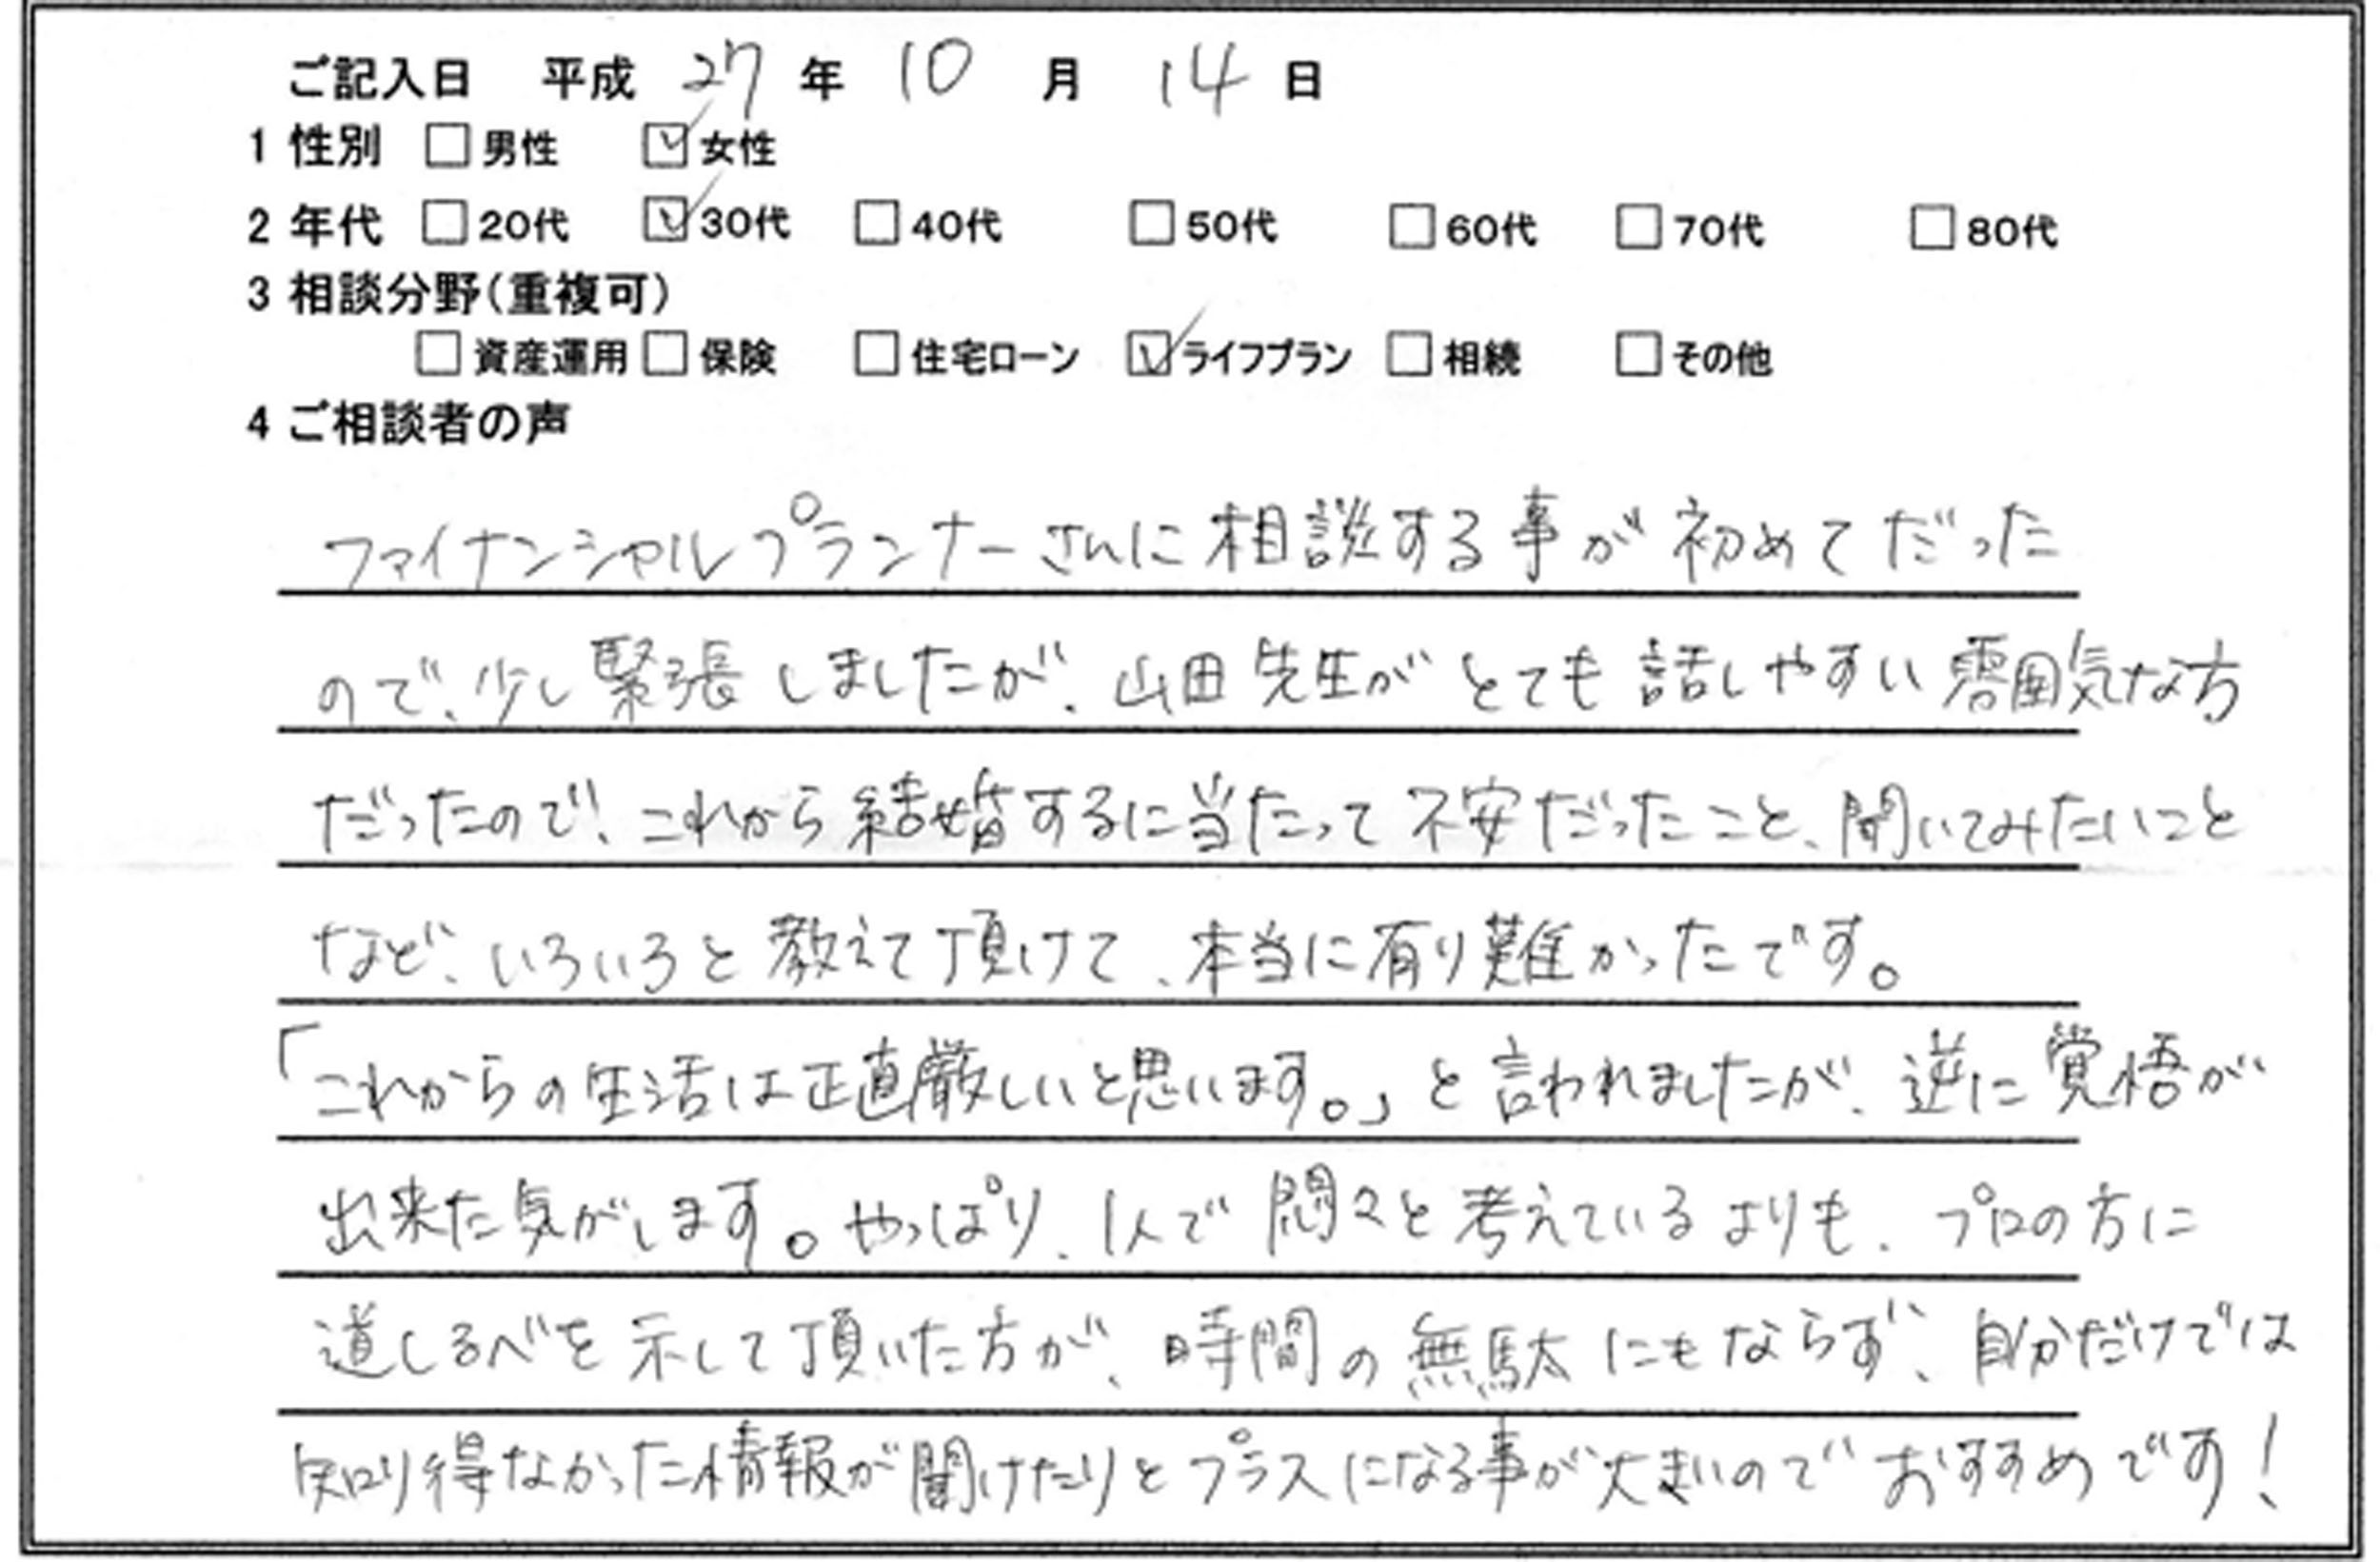 ご記入日 平成 27 年 10 月 14 日
1 性別 □男性 ☑女性
2 年代 □20代 ☑30代 □40代 □50代 □60代 □70代 □80代
3 相談分野(重複可)
□資産運用 □保険 □住宅ローン ☑ライフプラン □相続 □その他
4 ご相談者の声
ファイナンシャルプランナーさんに相談する事が初めてだった
ので、少し緊張しましたが、山田先生がとても話しやすい雰囲気な方
だったので、これから結婚するに当たって不安だったこと、聞いてみたいこと
など、いろいろと教えて頂けて、本当に有り難かったです。
「これからの生活は正直厳しいと思います。」と言われましたが、逆に覚悟が
出来た気がします。やっぱり、1人で悶々と考えているよりも、プロの方に
道しるべを示して頂いた方が、時間の無駄にもならず、自分だけでは
知り得なかった情報が聞けたりとプラスになる事が大きいのでおすすめです!